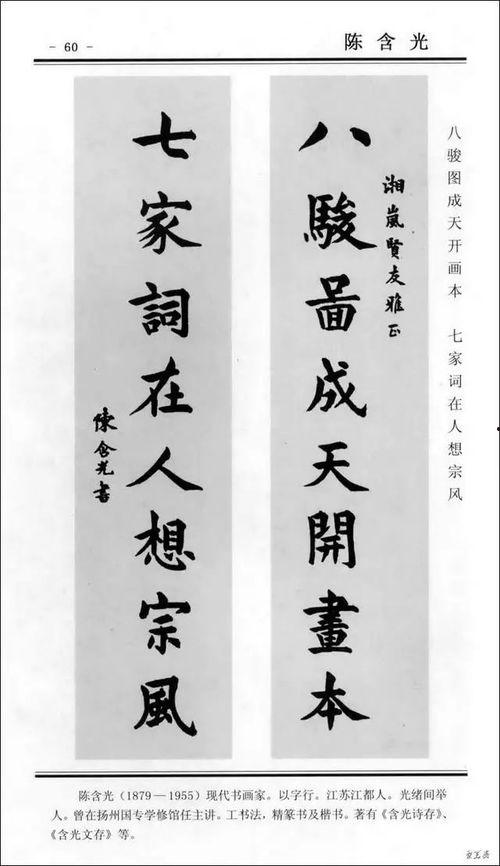 - 60 -
陈含光
八骏图成天开画本 七家词在人想宗风
湘嵐賢友雅正
八駿啚成天開畫本
七家詞在人想宗風
陳含光書
陈含光（1879—1955）现代书画家。以字行。江苏江都人。光绪间举
人。曾在扬州国专学修馆任主讲。工书法，精篆书及楷书。著有《含光诗存》、
《含光文存》等。